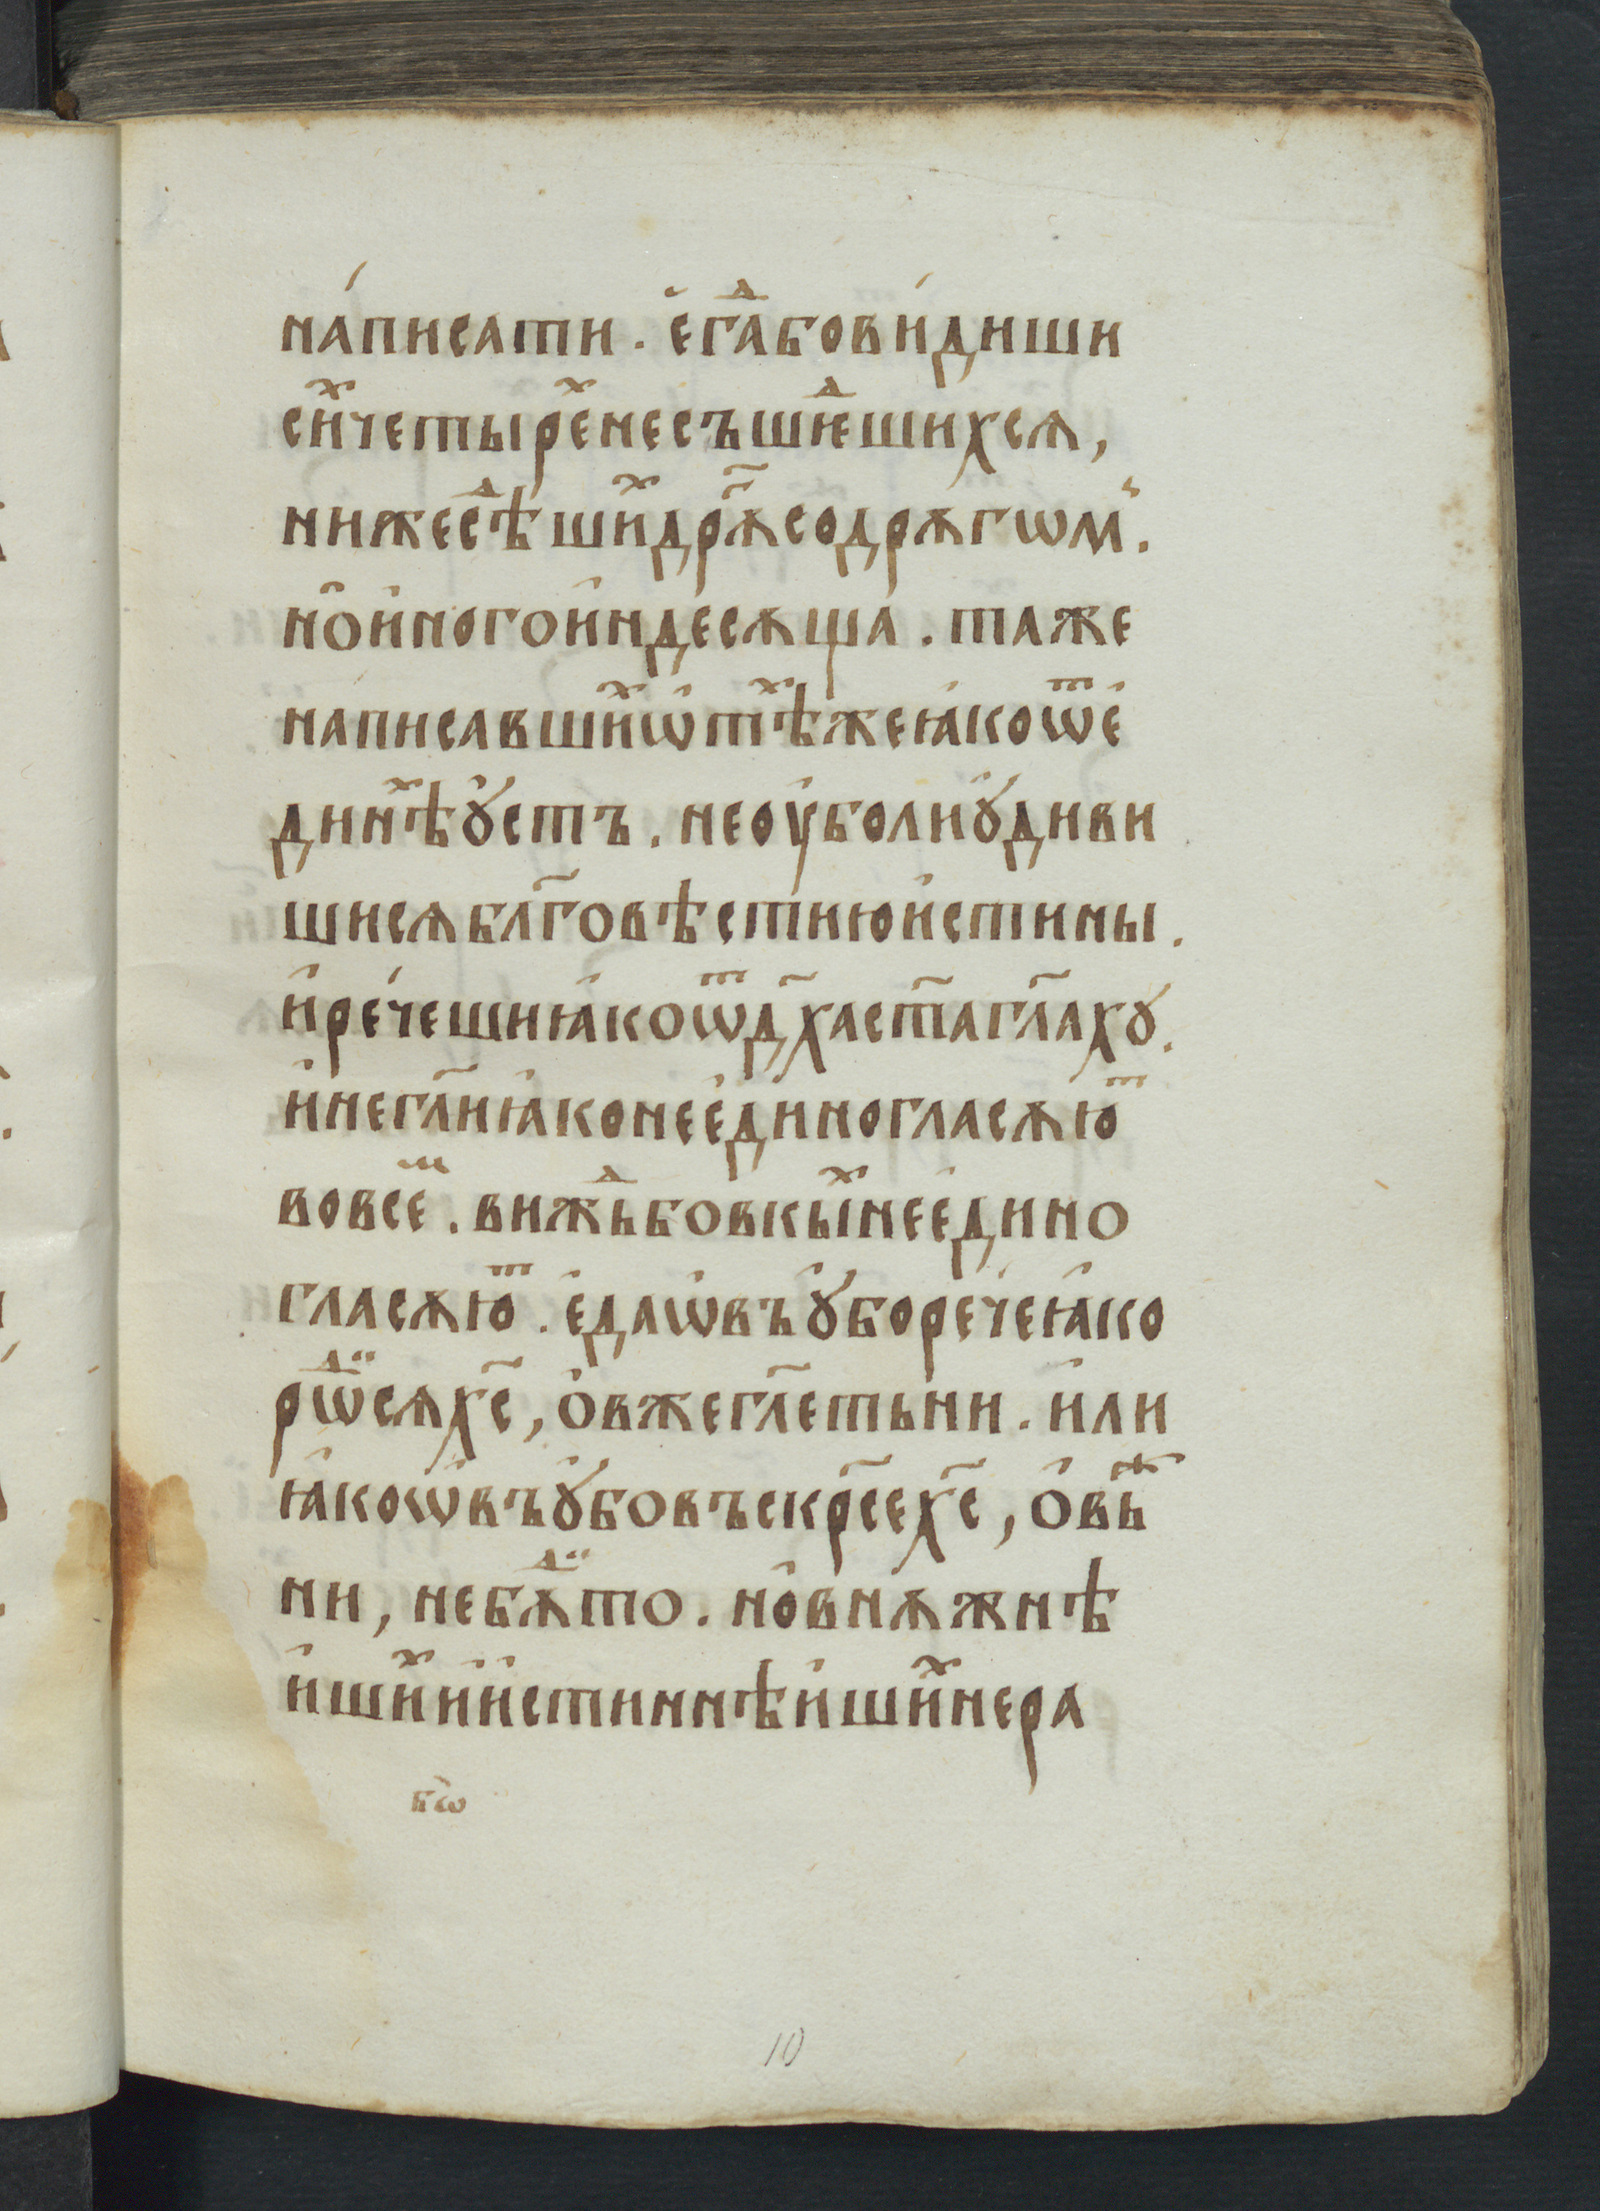 на́писати . є҆гⷣабови́диши
сиⷯчетыреⷯнесъшеⷣшихсѧ ,
нижесѣⷣшиⷯдрꙋ҃гсодрꙋгѡм .
но҆и҆ногои҆ндесѫща . таже
написавшиⷯѡ҆тѣⷯжеꙗ҆коѿє҆
динѣⷯꙋ҆стъ . неоу҆болиꙋ҆диви
шисѧбл҃говѣстиюи҆стины .
и҆рече́шиꙗ҆коѿдх҃аст҃агл҃ахꙋ .
и҆негл҃иꙗ҆конеє҆диногласѫюⷮ
вовсеⷨ . вижⷣьбовкыⷯнеє҆дино
гласѫюⷮ . є҆даѡ҆въꙋ҆боречеꙗ҆ко
рѡⷣсѧхс҃ , о҆вжегл҃етьни . и҆ли
ꙗ҆коѡ҆въꙋ҆бовъскрс҃ехс҃ , о҆вⷤь
ни , небꙋⷣто . но҆внѫжнѣ
и҆шиⷯи҆и҆стиннѣи҆шиⷯнера
бл҃ѡ
10